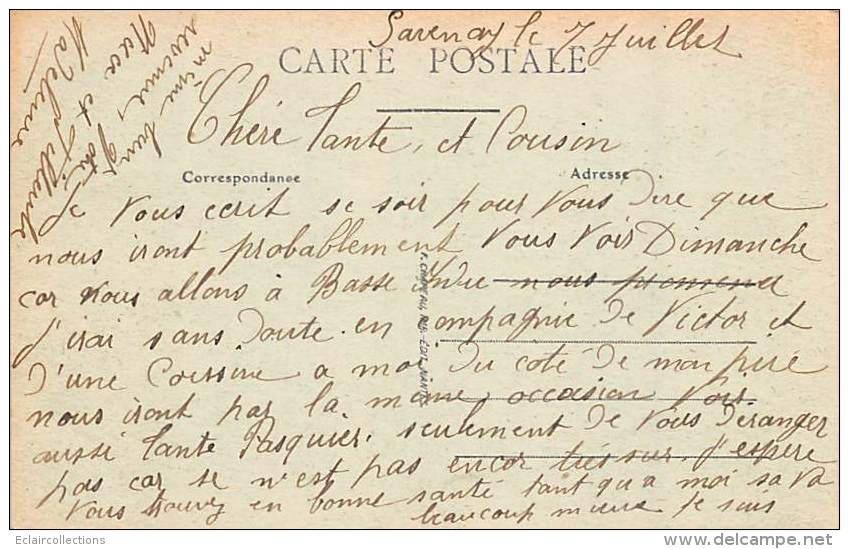 Savenay le 7 Juillet
CARTE POSTALE
Chére Tante, et Cousin
Correspondance
Adresse
Je vous ecrit se soir pour vous dire que
nous iront probablement vous voir Dimanche
car nous allons à Basse Indre nous promené
J'irai sans doute en compagnie de Victor et
d'une Coussine a moi du coté de mon père
nous iront par la même occasion voir
aussi Tante Pasquier, seulement de vous deranger
pas car se n'est pas encor tres sur. J'espere
vous trouvez en bonne santé tant qu'a moi sa va
beaucoup mieux je suis
même
revenue
Nièce et
Madeleine
Eclaircollections
delcampe.net